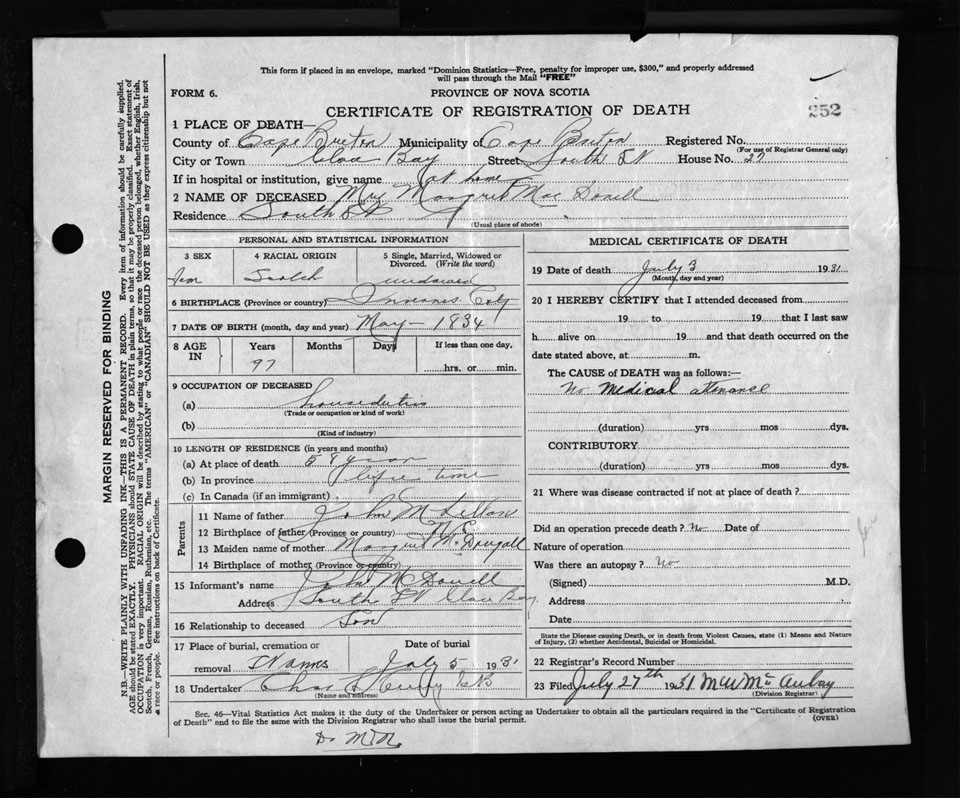 This form if placed in an envelope, marked "Dominion Statistics—Free, penalty for improper use, $300," and properly addressed
will pass through the Mail "FREE"
FORM 6.
PROVINCE OF NOVA SCOTIA
252
CERTIFICATE OF REGISTRATION OF DEATH
1 PLACE OF DEATH—
County of Cape Breton Municipality of Cape Breton Registered No.
(For use of Registrar General only)
City or Town Glace Bay Street South St House No. 27
If in hospital or institution, give name at home
2 NAME OF DECEASED Mrs Margaret Mac Donell
Residence South St
(Usual place of abode)
PERSONAL AND STATISTICAL INFORMATION
3 SEX 4 RACIAL ORIGIN 5 Single, Married, Widowed or Divorced. (Write the word)
Fem Scotch widowed
6 BIRTHPLACE (Province or country)
7 DATE OF BIRTH (month, day and year) May — 1834
8 AGE IN Years Months Days If less than one day,
97 hrs. or min.
9 OCCUPATION OF DECEASED
(a) houseduties
(Trade or occupation or kind of work)
(b)
(Kind of industry)
10 LENGTH OF RESIDENCE (in years and months)
(a) At place of death 58 year
(b) In province life time
(c) In Canada (if an immigrant)
Parents
11 Name of father John
12 Birthplace of father (Province or country) N.S.
13 Maiden name of mother Margaret McDougall
14 Birthplace of mother (Province or country)
15 Informant's name John McDonell
Address South St Glace Bay
16 Relationship to deceased Son
17 Place of burial, cremation or Date of burial
removal July 5 1931
18 Undertaker Chas
(Name and address)
MEDICAL CERTIFICATE OF DEATH
19 Date of death July 3 1931
(Month, day and year)
20 I HEREBY CERTIFY that I attended deceased from
19 to 19 that I last saw
h alive on 19 and that death occurred on the
date stated above, at m.
The CAUSE of DEATH was as follows:—
No Medical attenance
(duration) yrs mos dys.
CONTRIBUTORY
(duration) yrs mos dys.
21 Where was disease contracted if not at place of death?
Did an operation precede death? No Date of
Nature of operation
Was there an autopsy? No
(Signed) M.D.
Address
Date
State the Disease causing Death, or in death from Violent Causes, state (1) Means and Nature of Injury, (2) whether Accidental, Suicidal or Homicidal.
22 Registrar's Record Number
23 Filed July 27th 1931
(Division Registrar)
Sec. 46—Vital Statistics Act makes it the duty of the Undertaker or person acting as Undertaker to obtain all the particulars required in the "Certificate of Registration
of Death" and to file the same with the Division Registrar who shall issue the burial permit.
(OVER)
MARGIN RESERVED FOR BINDING
N.B.—WRITE PLAINLY WITH UNFADING INK—THIS IS A PERMANENT RECORD. Every item of information should be carefully supplied.
AGE should be stated EXACTLY. PHYSICIANS should STATE CAUSE OF DEATH in plain terms, so that it may be properly classified. Exact statement of
OCCUPATION is very important. RACIAL ORIGIN will be described by stating to what people or race the deceased person belonged, whether English, Irish,
Scotch, French, German, Russian, Ruthenian, etc. The terms "AMERICAN" or "CANADIAN" SHOULD NOT BE USED as they express citizenship but not
a race or people. See instructions on back of Certificate.